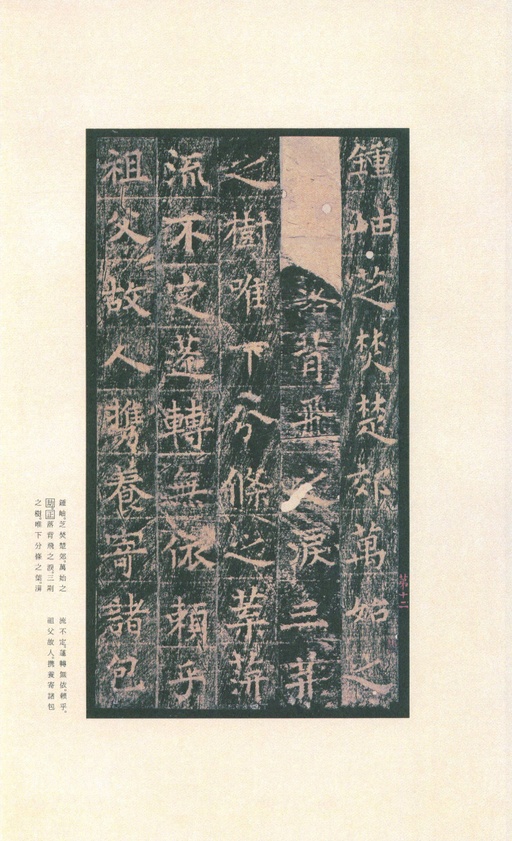 鍾岫芝焚楚郊萬始之
落背飛之淚三荆
之樹唯下分條之葉萍
流不定蓬轉無依賴乎
祖父故人攜養寄諸包
第十二
鍾岫芝焚楚郊萬始之
落背飛之淚三荆
之樹唯下分條之葉萍
流不定蓬轉無依賴乎
祖父故人攜養寄諸包